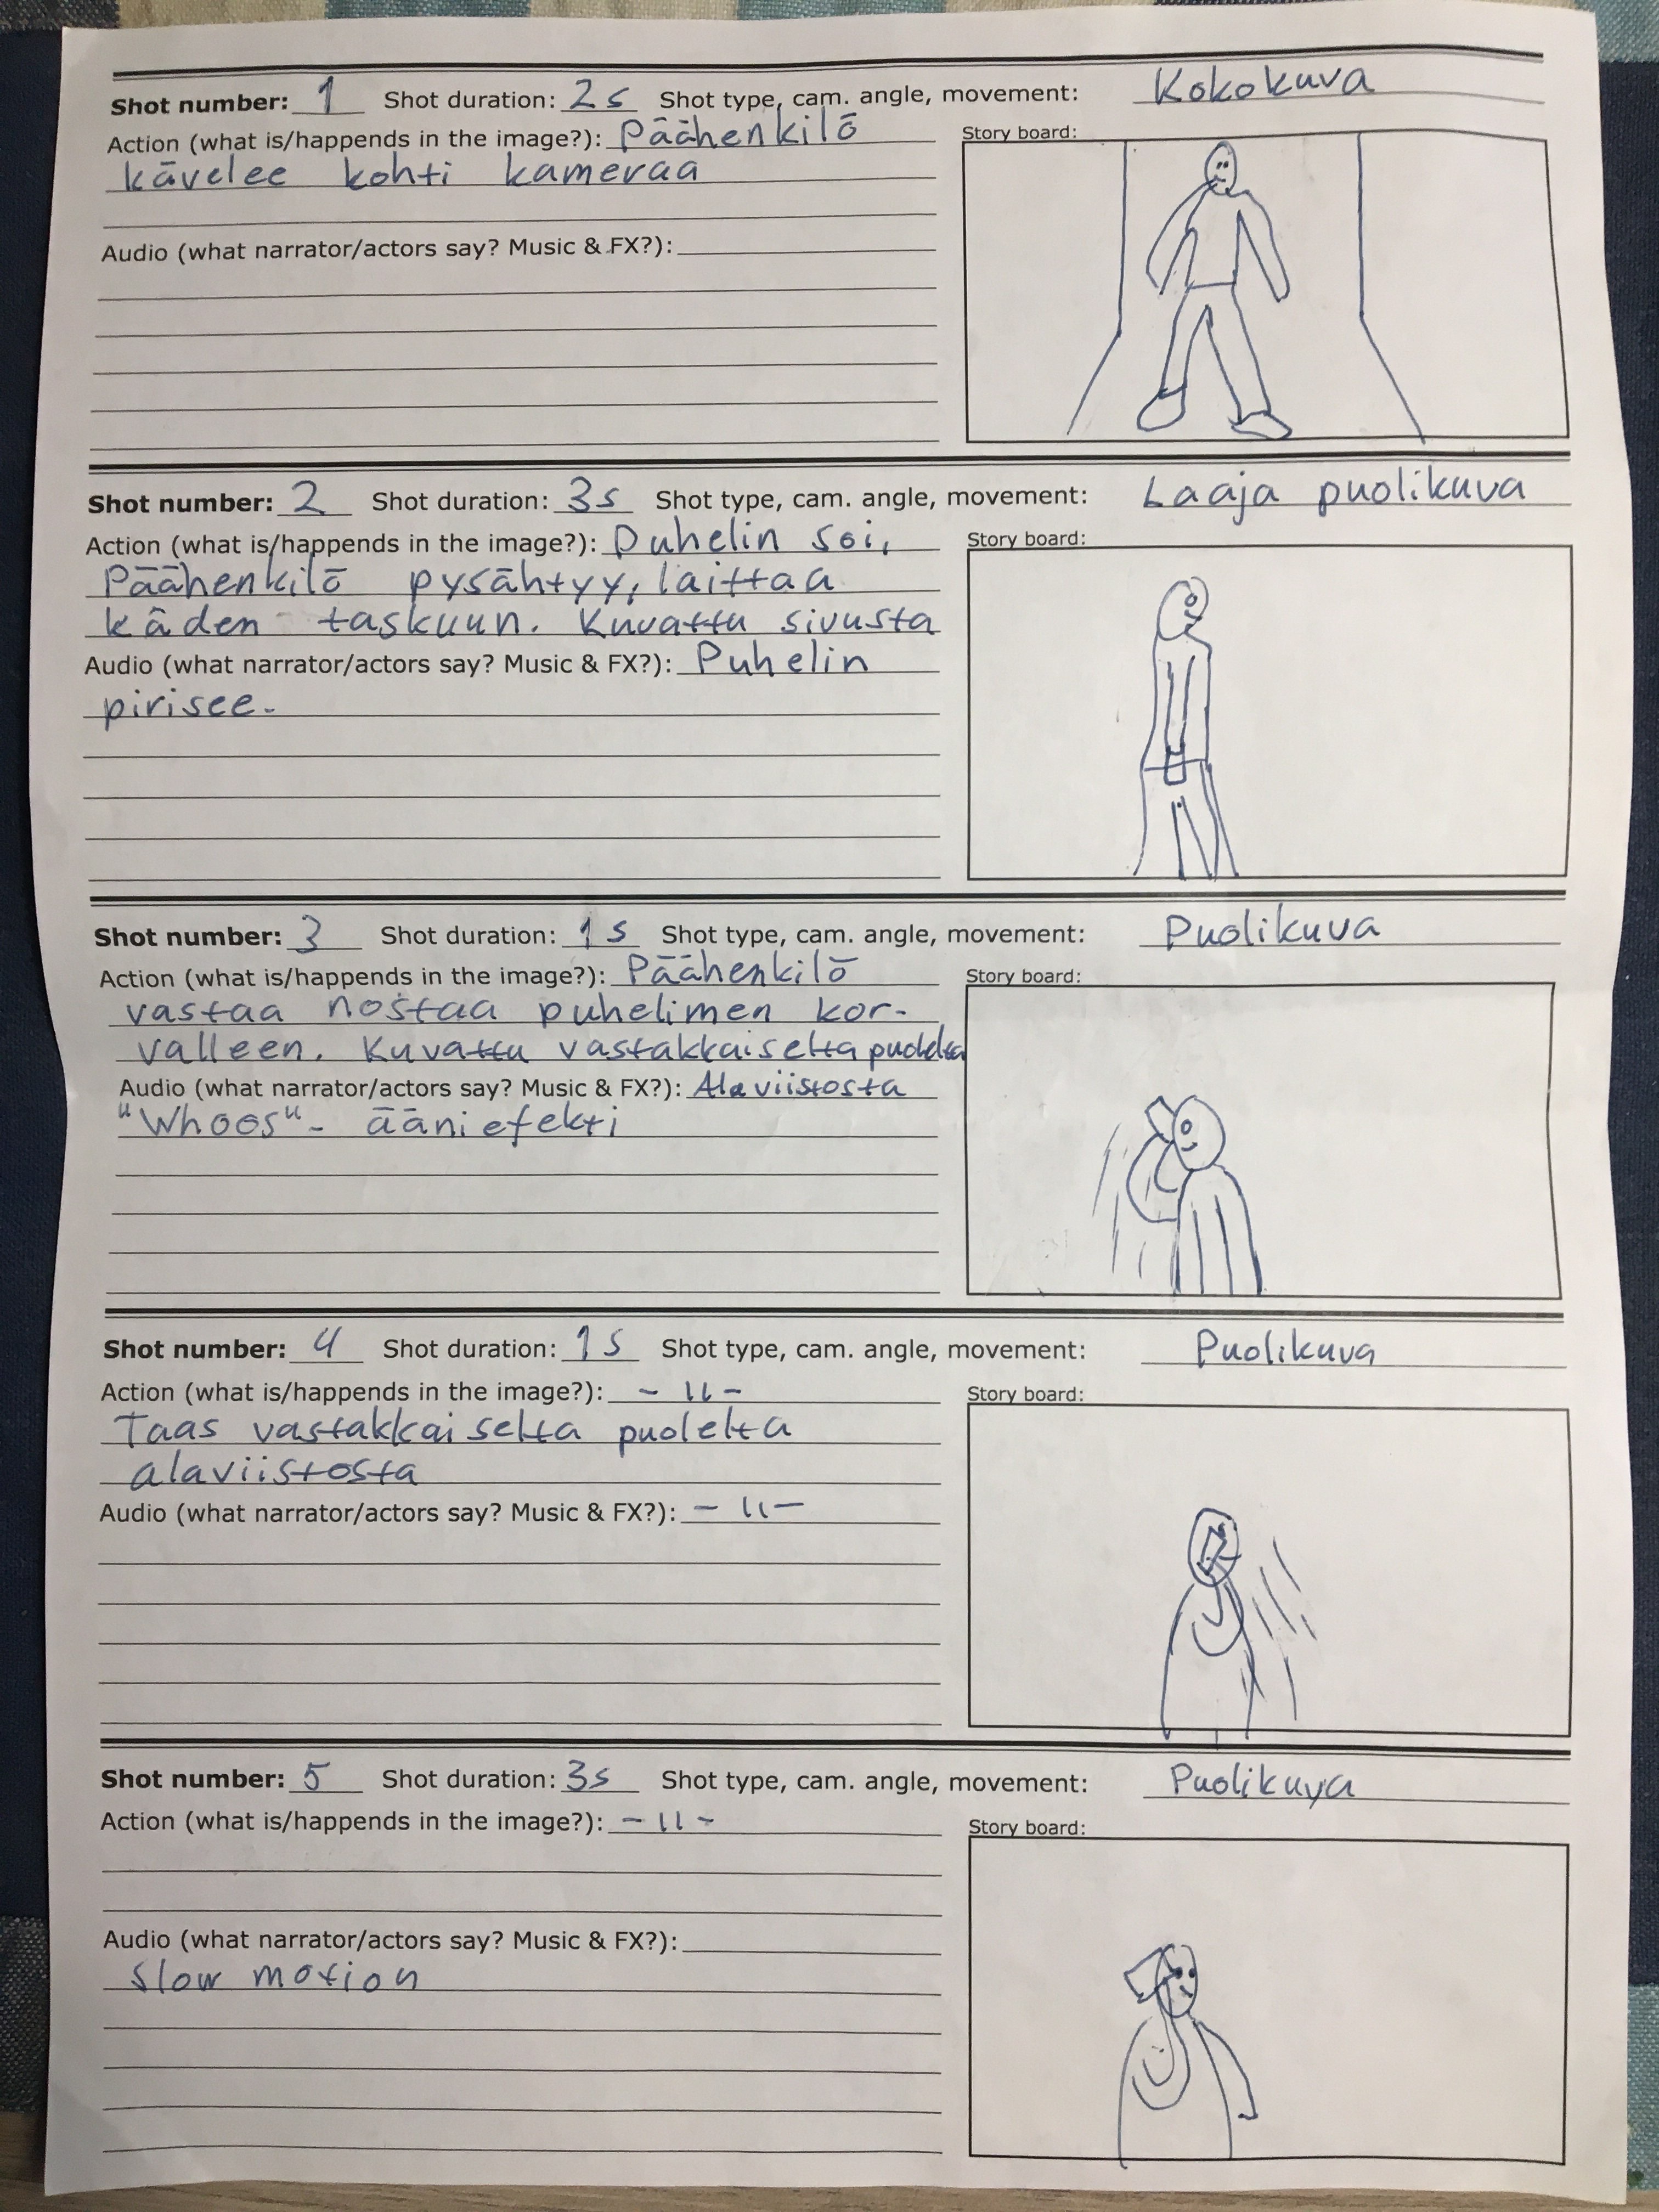 Shot number: 1 Shot duration: 2s Shot type, cam. angle, movement: Kokokuva
Action (what is/happends in the image?): Päähenkilö
kävelee kohti kameraa
Story board:
Audio (what narrator/actors say? Music & FX?):
Shot number: 2 Shot duration: 3s Shot type, cam. angle, movement: Laaja puolikuva
Action (what is/happends in the image?): Puhelin soi,
Päähenkilö pysähtyy, laittaa
käden taskuun. Kuvattu sivusta
Story board:
Audio (what narrator/actors say? Music & FX?): Puhelin
pirisee.
Shot number: 3 Shot duration: 1s Shot type, cam. angle, movement: Puolikuva
Action (what is/happends in the image?): Päähenkilö
vastaa nostaa puhelimen kor-
valleen. Kuvattu vastakkaiselta puolelta
Story board:
Audio (what narrator/actors say? Music & FX?): Alaviistosta
"Whoos"- ääniefekti
Shot number: 4 Shot duration: 1s Shot type, cam. angle, movement: Puolikuva
Action (what is/happends in the image?): - 11 -
Taas vastakkaiselta puolelta
alaviistosta
Story board:
Audio (what narrator/actors say? Music & FX?): - 11 -
Shot number: 5 Shot duration: 3s Shot type, cam. angle, movement: Puolikuva
Action (what is/happends in the image?): - 11 -
Story board:
Audio (what narrator/actors say? Music & FX?):
slow motion